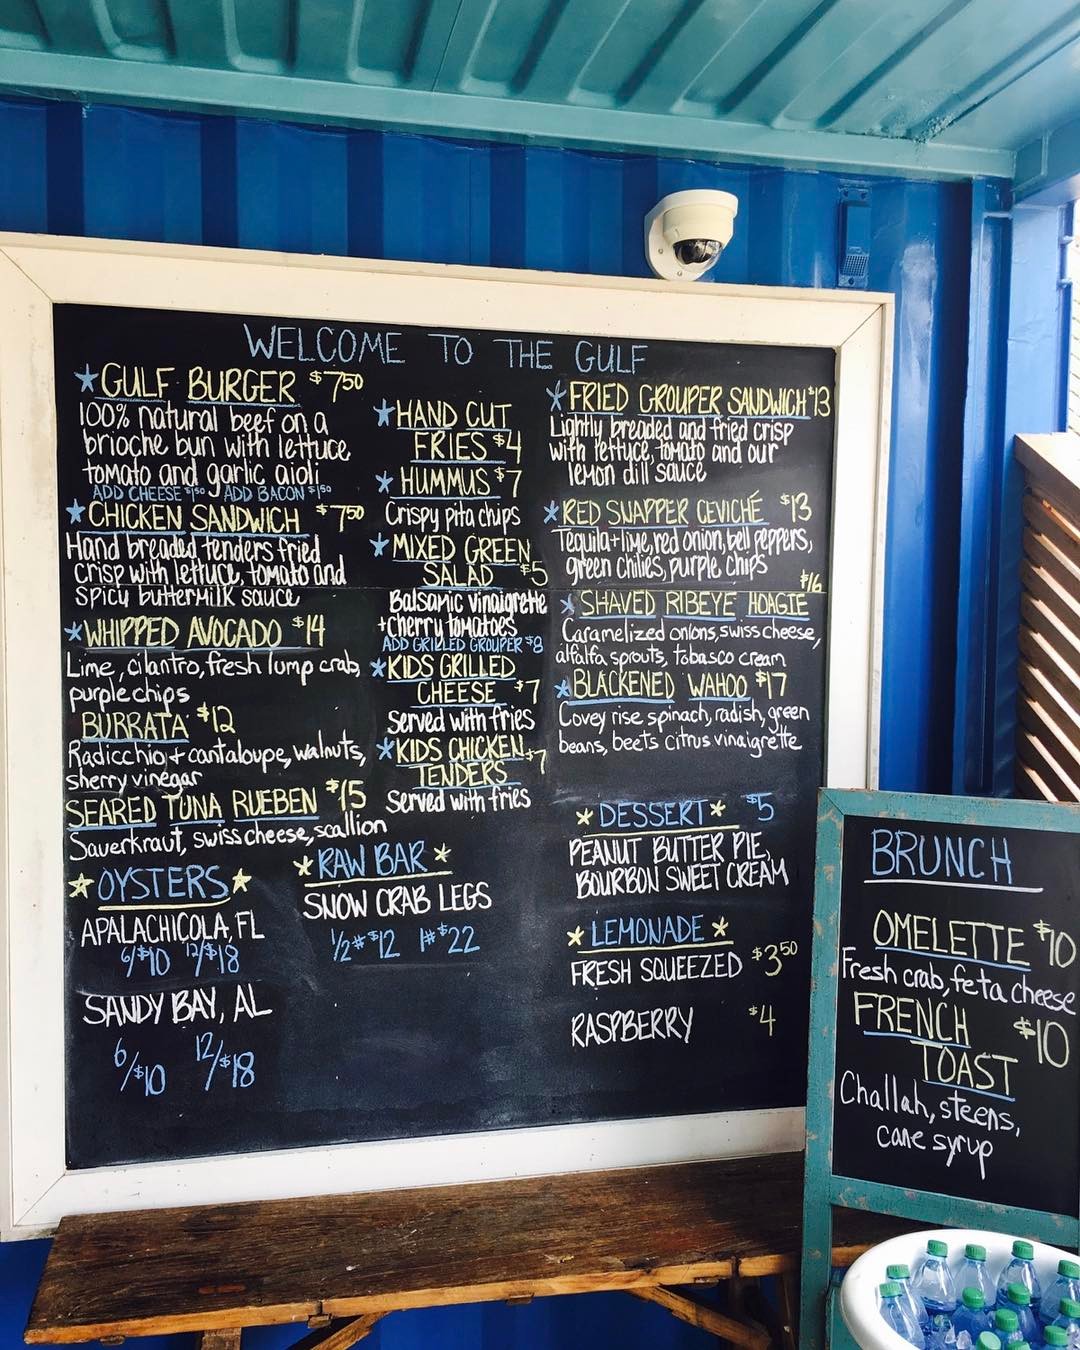 WELCOME TO THE GULF
GULF BURGER $7.50
100% natural beef on a
brioche bun with lettuce,
tomato and garlic aioli
ADD CHEESE $1.50 ADD BACON $1.50
CHICKEN SANDWICH $7.50
Hand breaded tenders fried
crisp with lettuce, tomato and
spicy buttermilk sauce
WHIPPED AVOCADO $14
Lime, cilantro, fresh lump crab,
purple chips
BURRATA $12
Radicchio + cantaloupe, walnuts,
sherry vinegar
SEARED TUNA RUEBEN $15
Sauerkraut, swiss cheese, scallion
OYSTERS
APALACHICOLA, FL
6/$10 12/$18
SANDY BAY, AL
6/$10 12/$18
HAND CUT
FRIES $4
HUMMUS $7
Crispy pita chips
MIXED GREEN
SALAD $5
Balsamic vinaigrette
+cherry tomatoes
ADD GRILLED GROUPER $8
KIDS GRILLED
CHEESE $7
Served with fries
KIDS CHICKEN
TENDERS $7
Served with fries
RAW BAR
SNOW CRAB LEGS
1/2# $12 1# $22
FRIED GROUPER SANDWICH $13
Lightly breaded and fried crisp
with lettuce, tomato and our
lemon dill sauce
RED SNAPPER CEVICHÉ $13
Tequila + lime, red onion, bell peppers,
green chilies, purple chips
$16
SHAVED RIBEYE HOAGIE
Caramelized onions, swiss cheese,
alfalfa sprouts, tobasco cream
BLACKENED WAHOO $17
Covey rise spinach, radish, green
beans, beets citrus vinaigrette
DESSERT $5
PEANUT BUTTER PIE,
BOURBON SWEET CREAM
LEMONADE
FRESH SQUEEZED $3.50
RASPBERRY $4
BRUNCH
OMELETTE $10
Fresh crab, feta cheese
FRENCH $10
TOAST
Challah, steens,
cane syrup